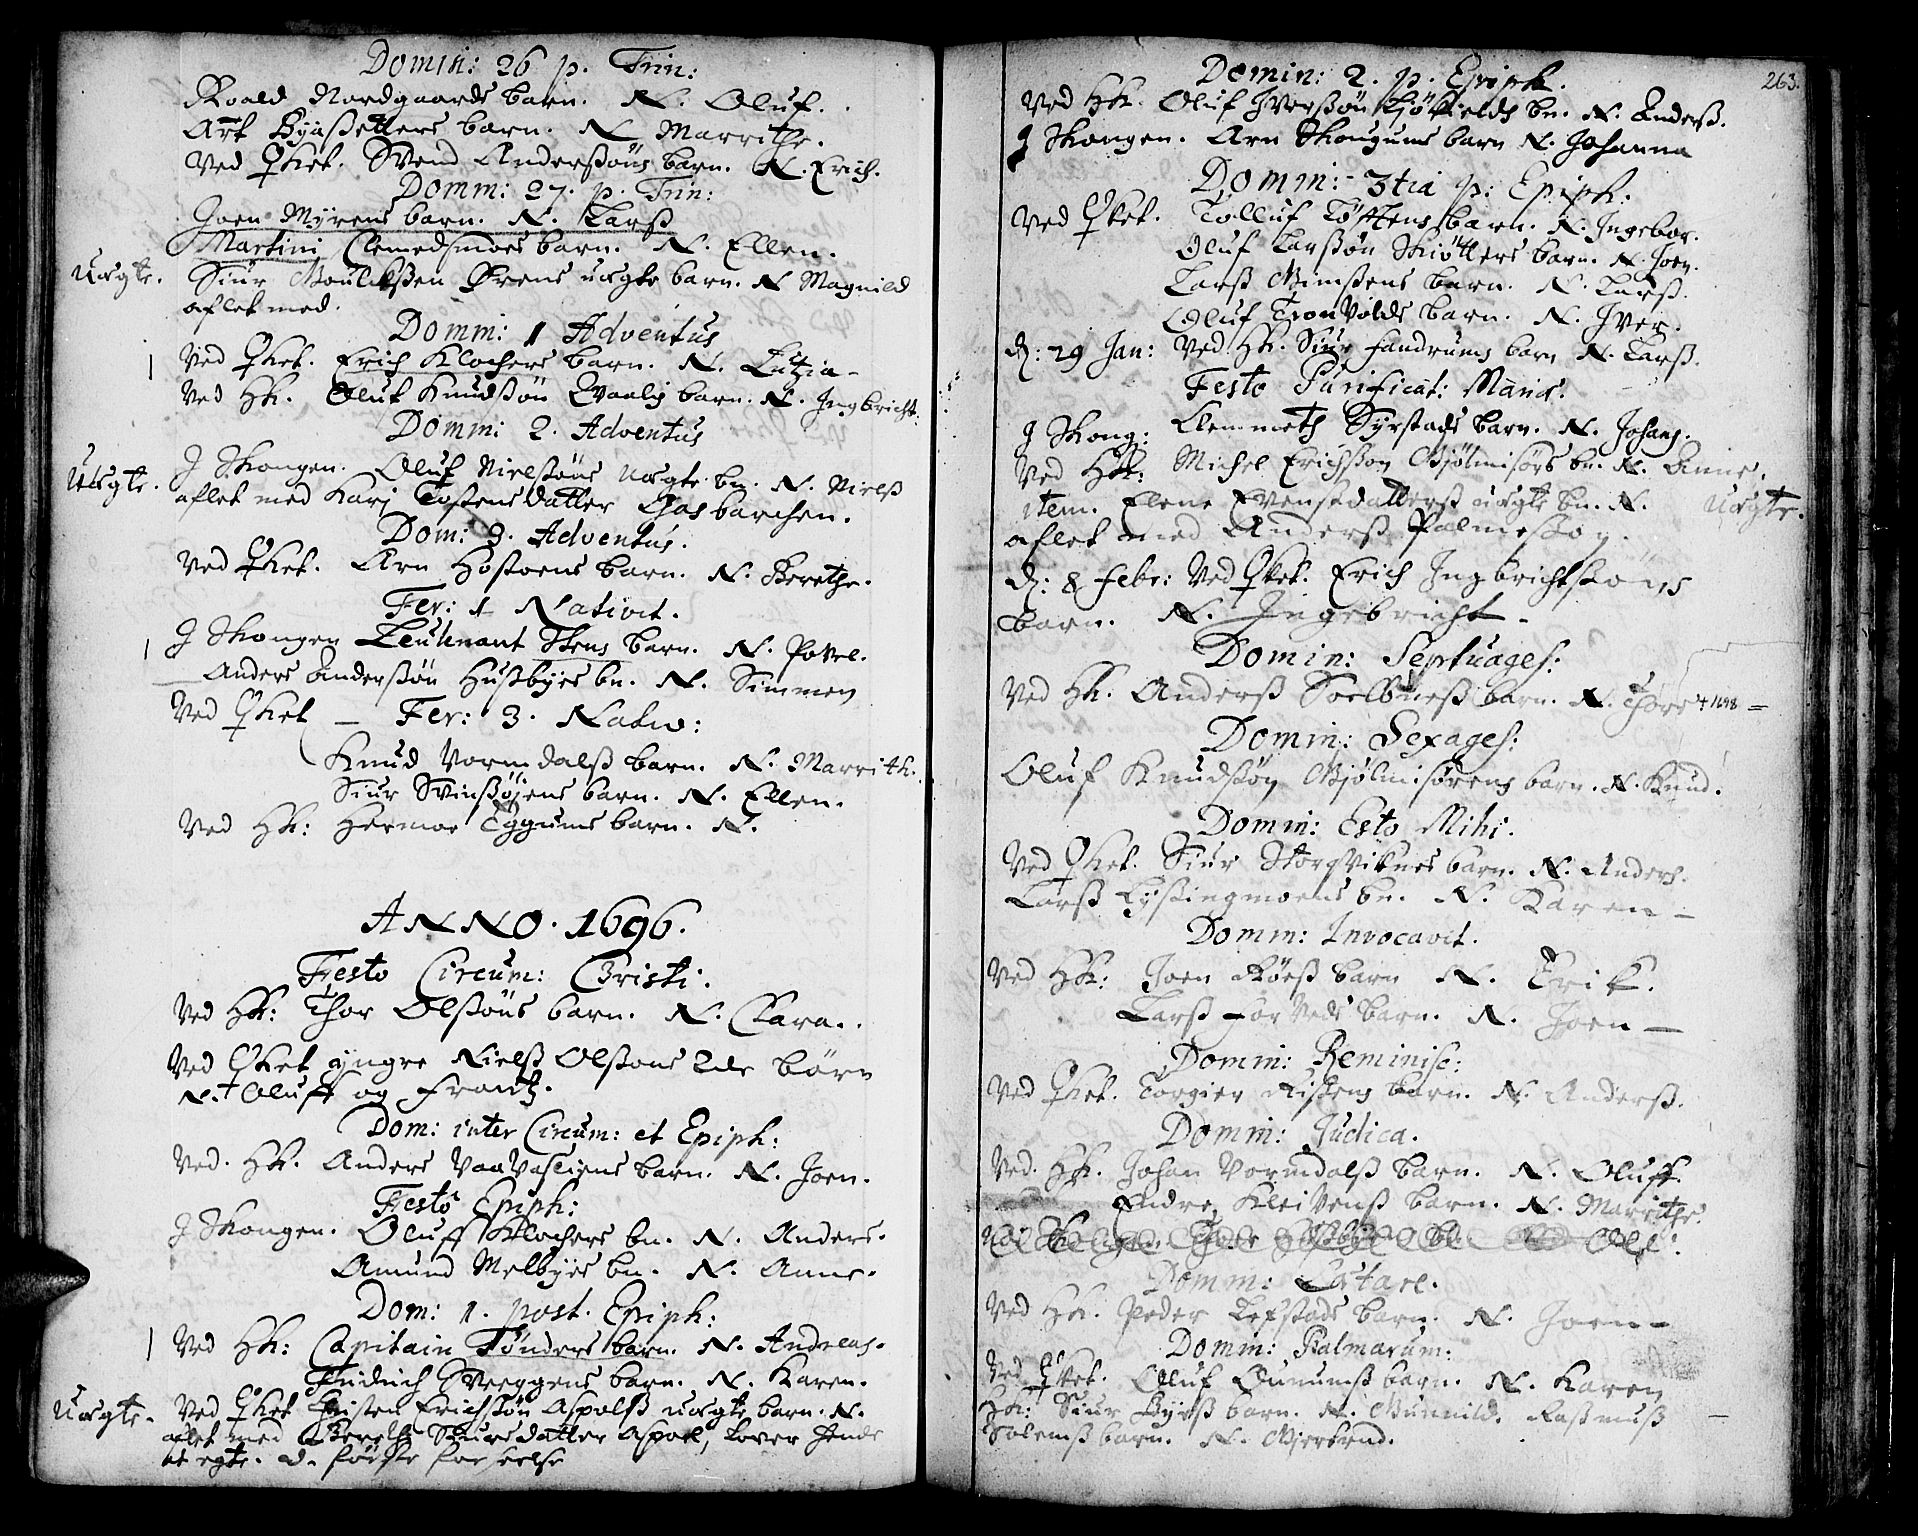 Domin: 26 p. Trin:
Roald Nordgaards barn. N. Oluf.
Arft Byasetters barn. N Marrithe.
Ved Qket. Svend Anderssøns barn. N. Erich.
Domin: 27. p. Trin:
Joen Myrens barn. N. Larss
Martini Clemedsmoes barn. N. Ellen.
Uægte. Siur Ørens uægte barn. N Magnild
aflet med.
Domin: 1 Adventus
Ved Qket. Erich Klochers barn. N. Lutzia -
Ved HK. Oluf Knudssøn Qvaalis barn. N. Ingbricht.
Domin: 2. Adventus
Uægte. J Skongen. Oluf Nielssøns uægte bn. N. Nielss
aflet med Karj Tostensdatter Aasbarchen.
Dom: 3. Adventus.
Ved Qket. Arn Hostoens barn. N. Berethe.
Fer: 1 Nativit.
J Skongen Leutenant Stens barn. N. Povel.
Anders Anderssøn Hussbyes bn. N. Simmen
Ved Qket - Fer: 3. Nativ:
Knud Vormdalss barn. N. Marrith.
Siur Svinssøjens barn. N. Ellen.
Ved HK: Hermoe Eggums barn. N.
ANNO. 1696.
Festo Circum: Christi.
Ved HK: Thor Olssøns barn. N. Clara.
Ved Qket yngre Nielss Olssøns 2de børn
N. + Oluff og Frantz.
Dom: inter Circum: et Epiph:
Ved. HK. Anders barn. N. Joen.
Festo Epiph:
J Skongen. Oluff Klochers bn. N. Anders.
Amund Melbyes bn. N. Anne.
Dom: 1. post. Epiph:
Ved HK: Capitain Tønders barn. N. Andreas.
Fridrich Sveggens barn. N. Karen.
Uægte. Ved Qket Christen Erichssøn Aspolss uægte barn. N.
aflet med Bereth Siursdatter Aspoel, Lover hende
at egte. d. første forseelse
263.
Domin: 2. p. Epiph.
Ved HK. Oluf Iverssøn bn. N. Anderss.
J Skongen. Arn Skougums barn N. Johanna
Domin: 3tia p: Epiph:
Ved Qket. Tolluf Tøftens barn. N. Ingebor.
Oluf Larssøn Skiøtters barn. N. Joen.
Larss Gimsens barn. N. Larss.
Oluf Tronvolds barn. N. Iver.
d: 29 Jan: Ved HK. Siur Fandrums barn N. Larss.
Festo Purificat: Mariæ.
J Skong: Clemmeth Syrstads barn. N. Johans.
Ved HK: Michel Erichssøn Gjølmisørs bn. N. Anne.
item. Elene Evensdatterss uægte bn. N. Uægte.
aflet med Anderss Palmessøn.
d: 8 febr: Ved Qket. Erich Ingbrichtssøns
barn. N. Ingebricht -
Domin: Septuages:
Ved HK. Anderss Soelbuess barn. N. Thore + 1698 =
Domin: Sexages:
Oluf Knudssøn Gjølmisørens barn. N. Knud.
Domin: Esto Mihi.
Ved Qket. Siur Storgviknes barn. N. Anders.
Larss Lyssingmoens bn. N. Karen -
Domin: Invocavit.
Ved HK: Joen Røess barn N. Erik.
Larss Forveds barn. N. Joen -
Domin: Reminisc:
Ved Qket. Torgier Ristens barn. N. Anderss.
Domin: Judica.
Ved. HK. Johan Vormdalss barn. N. Oluff
Endre Kleivenss barn. N. Marrithe.
Domin: Lætare.
Ved HK. Peder Lefstads barn. N. Joen -
Domin: Palmarum:
Ved Qket. Oluf Dunumss barn. N. Karen
HK: Siur Byess barn. N. Gunnild. Rassmuss
Solemss barn. N. Gjertrud.